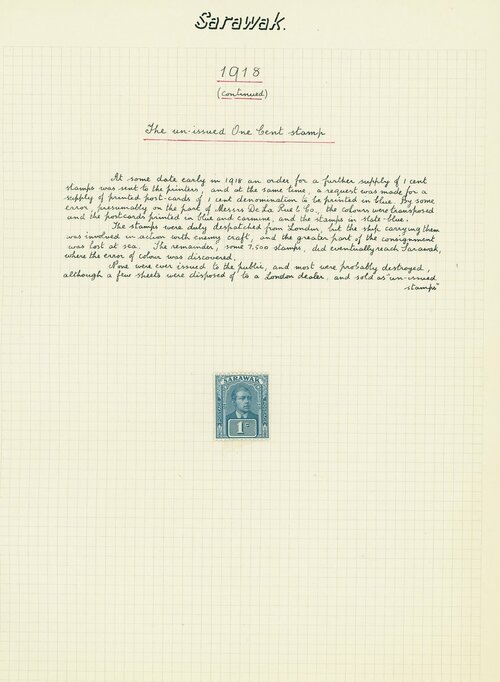 Sarawak.
1918
(continued)
The un-issued One Cent stamp
At some date early in 1918 an order for a further supply of 1 cent
stamps was sent to the printers, and at the same time, a request was made for a
supply of printed post-cards of 1 cent denomination to be printed in blue. By some
error, presumably on the part of Messrs De La Rue & Co., the colours were transposed
and the postcards printed in blue and carmine, and the stamps in slate-blue.
The stamps were duly despatched from London, but the ship carrying them
was involved in action with enemy craft, and the greater part of the consignment
was lost at sea. The remainder, some 7,500 stamps, did eventually reach Sarawak,
where the error of colour was discovered.
None were ever issued to the public, and most were probably destroyed,
although a few sheets were disposed of to a London dealer, and sold as "un-issued
stamps"
SARAWAK
1c